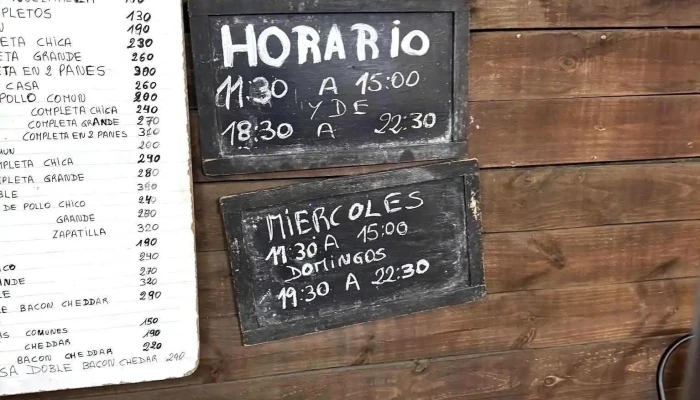 PLETOS 130
190
PLETA CHICA 230
ETA GRANDE 260
ETA EN 2 PANES 300
CASA 260
POLLO COMUN 200
COMPLETA CHICA 240
COMPLETA GRANDE 270
COMPLETA EN 2 PANES 320
MUN 200
MPLETA CHICA 240
MPLETA GRANDE 280
BLE
DE POLLO CHICO 240
GRANDE 280
ZAPATILLA 320
190
240
CO 270
NDE 320
LE 290
BACON CHEDDAR
150
AS COMUNES 190
CHEDDAR 220
BACON CHEDDAR
SA DOBLE BACON CHEDAR 290
HORARIO
11:30 A 15:00
Y DE
18:30 A 22:30
MIERCOLES
11:30 A 15:00
DOMINGOS
19:30 A 22:30